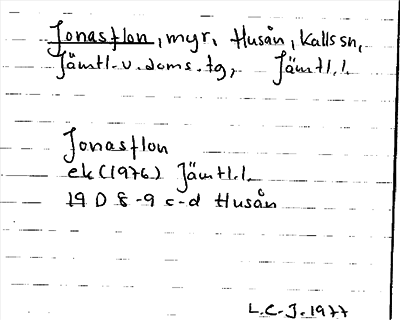 Jonasflon, myr, Husån, Kalls sn,
Jämtl. v. doms. tg, Jämtl. l.
Jonasflon
ek (1976) Jämtl. l.
19 D 8-9 c-d Husån
L.C.J. 1977